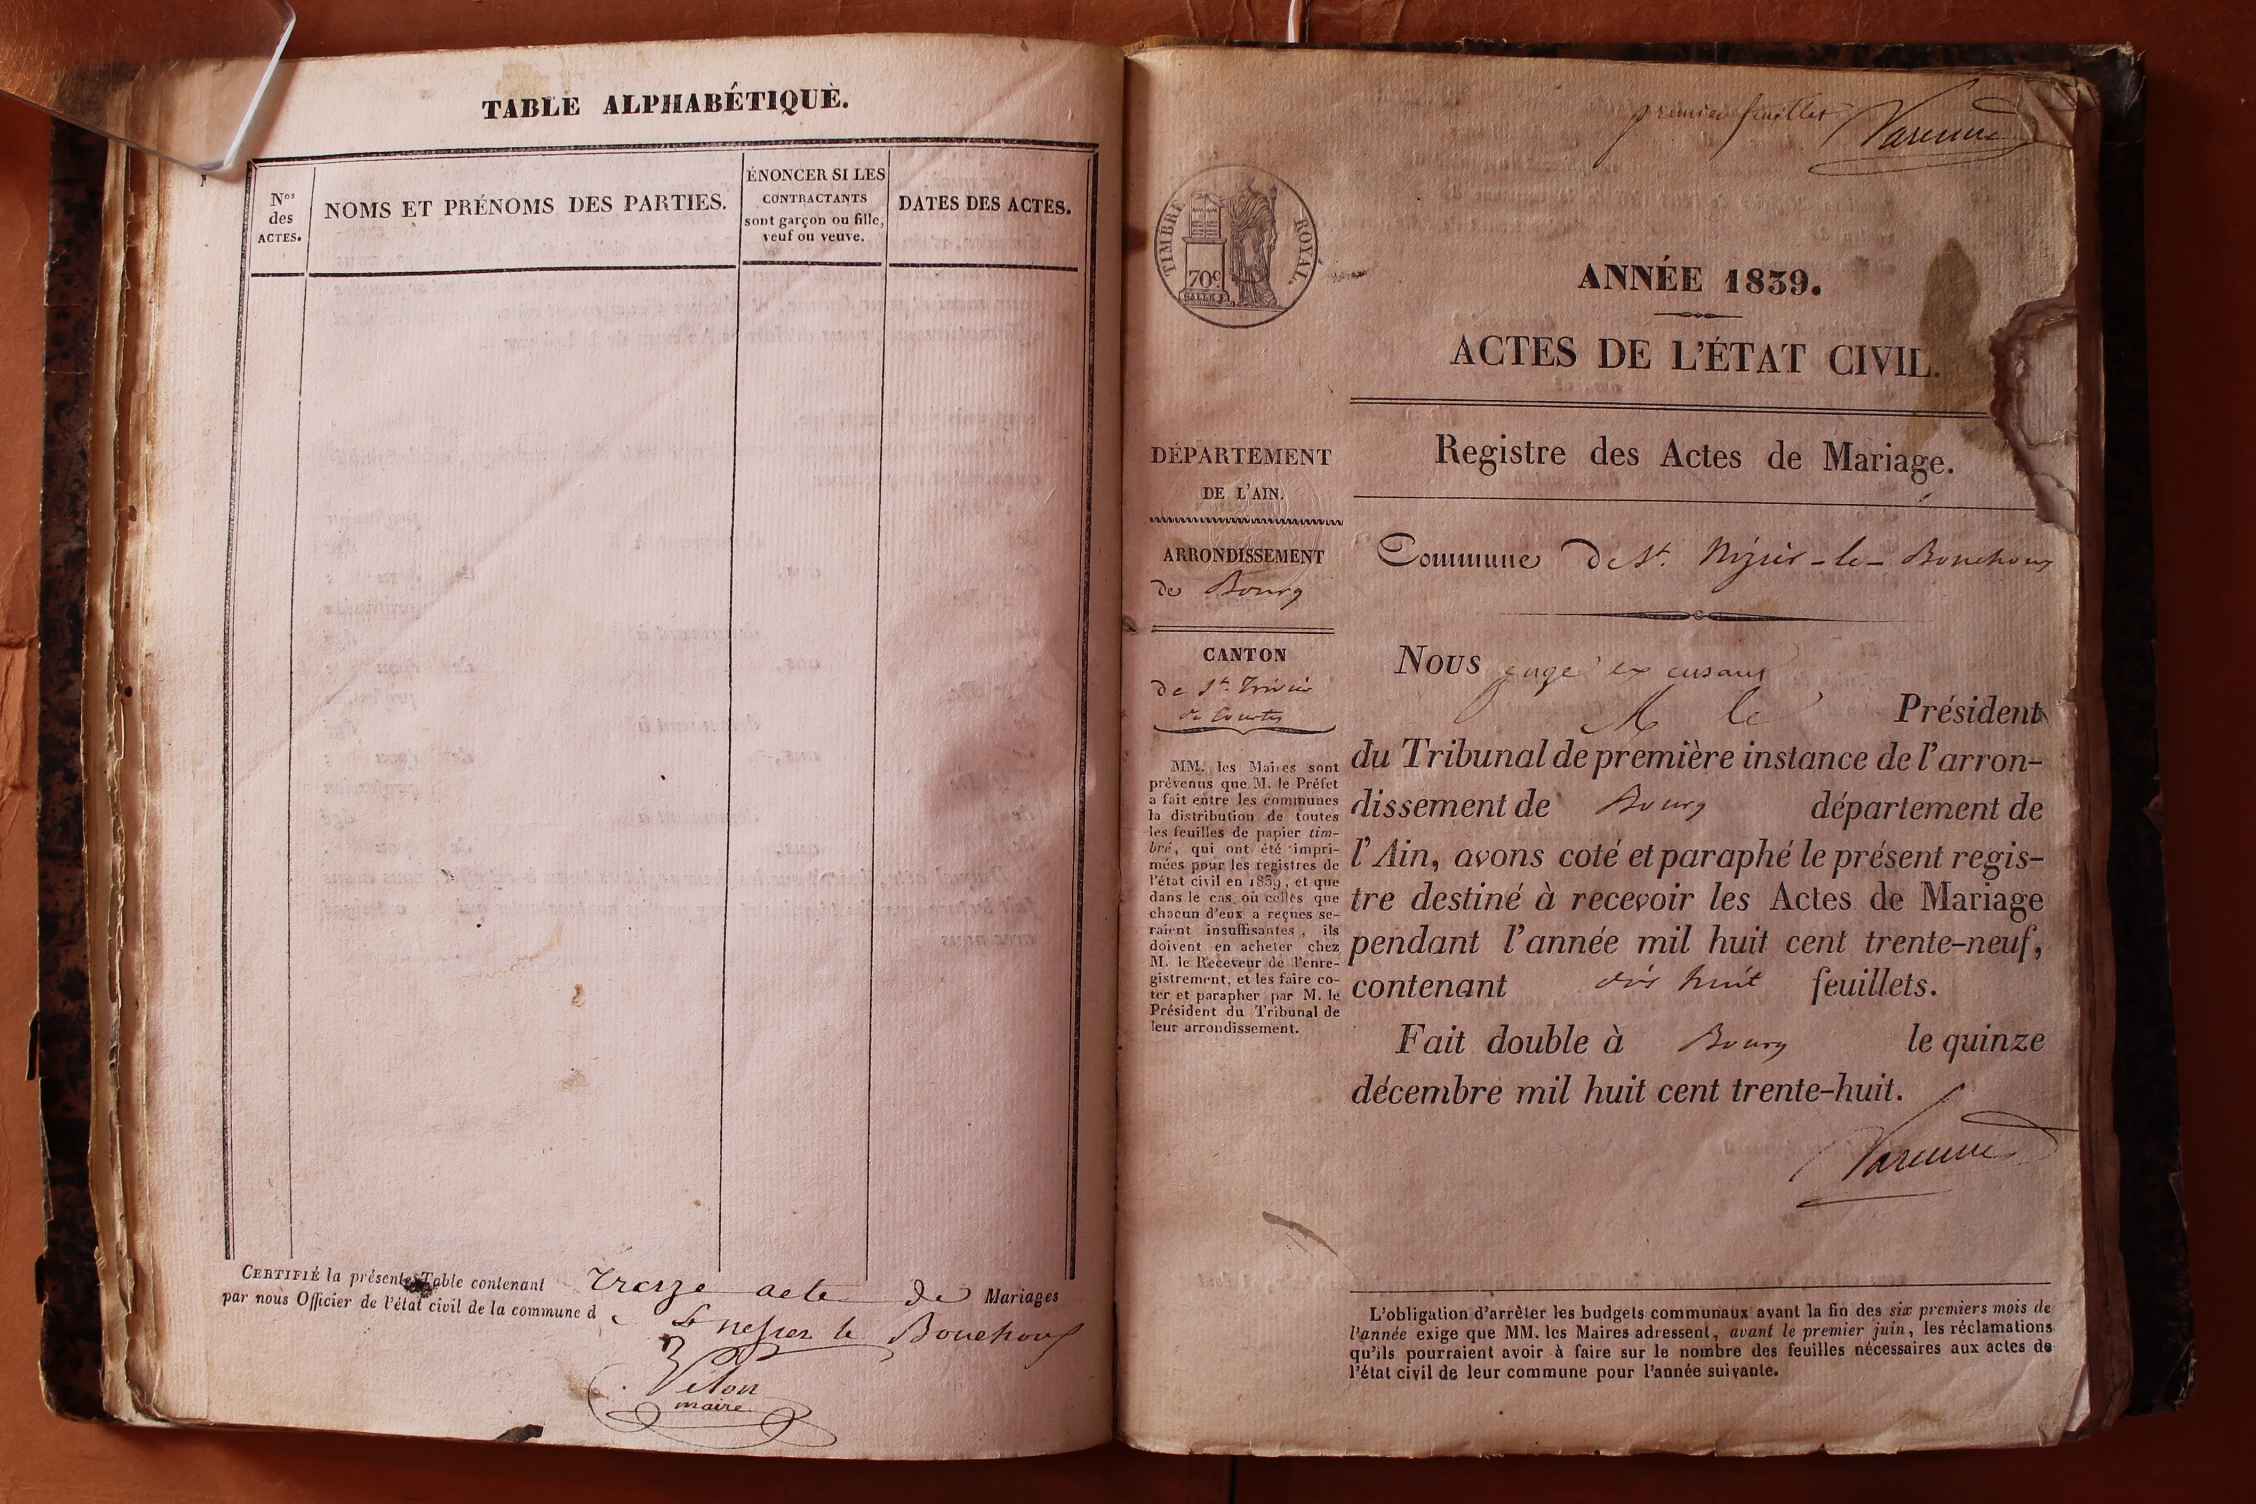 TABLE ALPHABÉTIQUE.
Nos
des
ACTES.
NOMS ET PRÉNOMS DES PARTIES.
ÉNONCER SI LES
CONTRACTANTS
sont garçon ou fille,
veuf ou veuve.
DATES DES ACTES.
CERTIFIÉ la présente Table contenant treize acte de Mariages
par nous Officier de l'état civil de la commune de St nesier le Bouchoux
Vélon
maire
premier feuillet Varenne
TIMBRE ROYAL.
70c
ANNÉE 1839.
ACTES DE L'ÉTAT CIVIL.
Registre des Actes de Mariage.
DÉPARTEMENT
DE L'AIN.
ARRONDISSEMENT
de Bourg
CANTON
de St. Trivier
de Courtes
MM. les Maires sont
prévenus que M. le Préfet
a fait entre les communes
la distribution de toutes
les feuilles de papier tim-
bré, qui ont été impri-
mées pour les registres de
l'état civil en 1839, et que
dans le cas où celles que
chacun d'eux a reçues se-
raient insuffisantes, ils
doivent en acheter chez
M. le Receveur de l'enre-
gistrement, et les faire co-
ter et parapher par M. le
Président du Tribunal de
leur arrondissement.
Commune de St. Nizier-le-Bouchoux
Nous juge excusant
M le Président
du Tribunal de première instance de l'arron-
dissement de Bourg département de
l'Ain, avons coté et paraphé le présent regis-
tre destiné à recevoir les Actes de Mariage
pendant l'année mil huit cent trente-neuf,
contenant dix huit feuillets.
Fait double à Bourg le quinze
décembre mil huit cent trente-huit.
Varenne
L'obligation d'arrêter les budgets communaux avant la fin des six premiers mois de
l'année exige que MM. les Maires adressent, avant le premier juin, les réclamations
qu'ils pourraient avoir à faire sur le nombre des feuilles nécessaires aux actes de
l'état civil de leur commune pour l'année suivante.